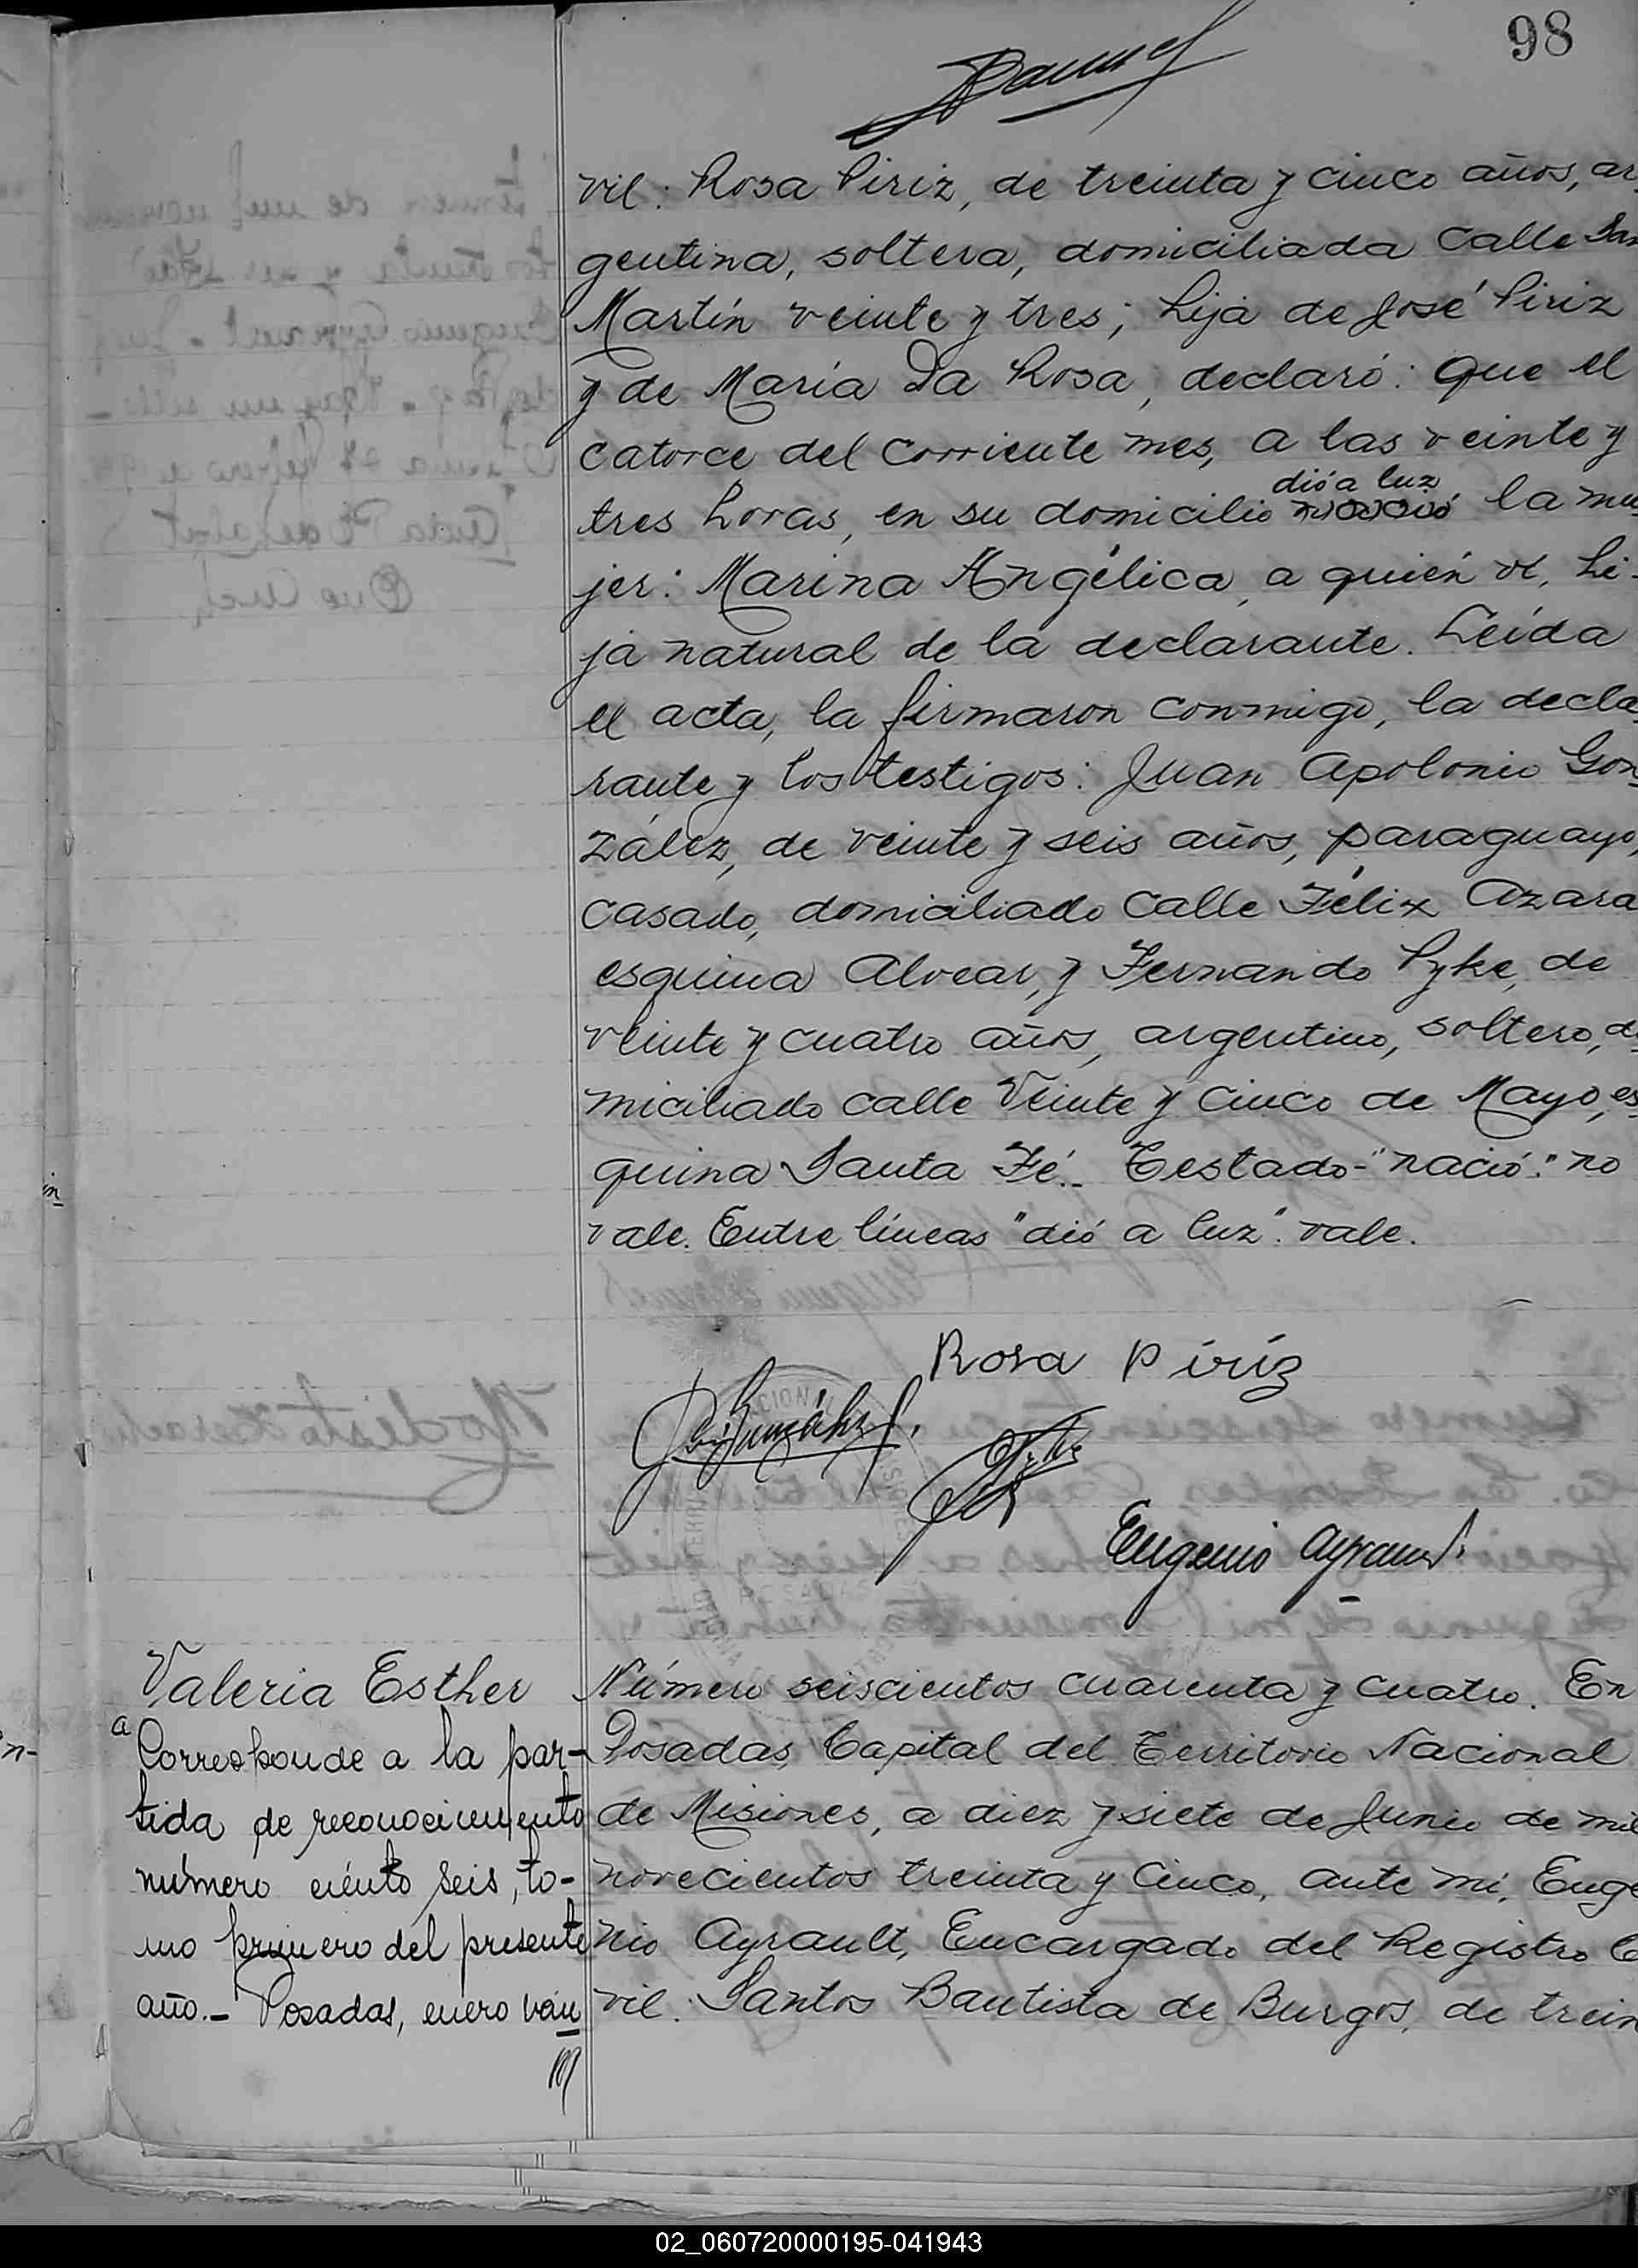 98
vil: Rosa Piriz, de treinta y cinco años, ar-
gentina, soltera, domiciliada calle San
Martín veinte y tres; hija de José Piriz
y de María Da Rosa, declaró: Que el
catorce del corriente mes, a las veinte y
dió a luz
tres horas, en su domicilio nació la mu-
jer: Marina Angélica, a quién ví, hi-
ja natural de la declarante. Leída
el acta, la firmaron conmigo, la decla-
rante y los testigos: Juan Apolonio Gon-
zález, de veinte y seis años, paraguayo,
casado, domiciliado calle Félix Azara
esquina Alvear, y Fernando Pyke, de
veinte y cuatro años, argentino, soltero, do-
miciliado calle Veinte y Cinco de Mayo, es-
quina Santa Fé.- Testado-"nació": no
vale. Entre líneas "dió a luz": vale.
Rosa Piriz
Eugenio Ayrault
Valeria Esther
a Corresponde a la par-
tida de reconocimiento
número ciento seis, to-
mo primero del presente
año.- Posadas, enero vein
Número seiscientos cuarenta y cuatro. En
Posadas, Capital del Territorio Nacional
de Misiones, a diez y siete de Junio de mil
novecientos treinta y cinco, ante mí, Euge
nio Ayrault, Encargado del Registro Ci
vil: Santos Bautista de Burgos, de trein
02_060720000195-041943